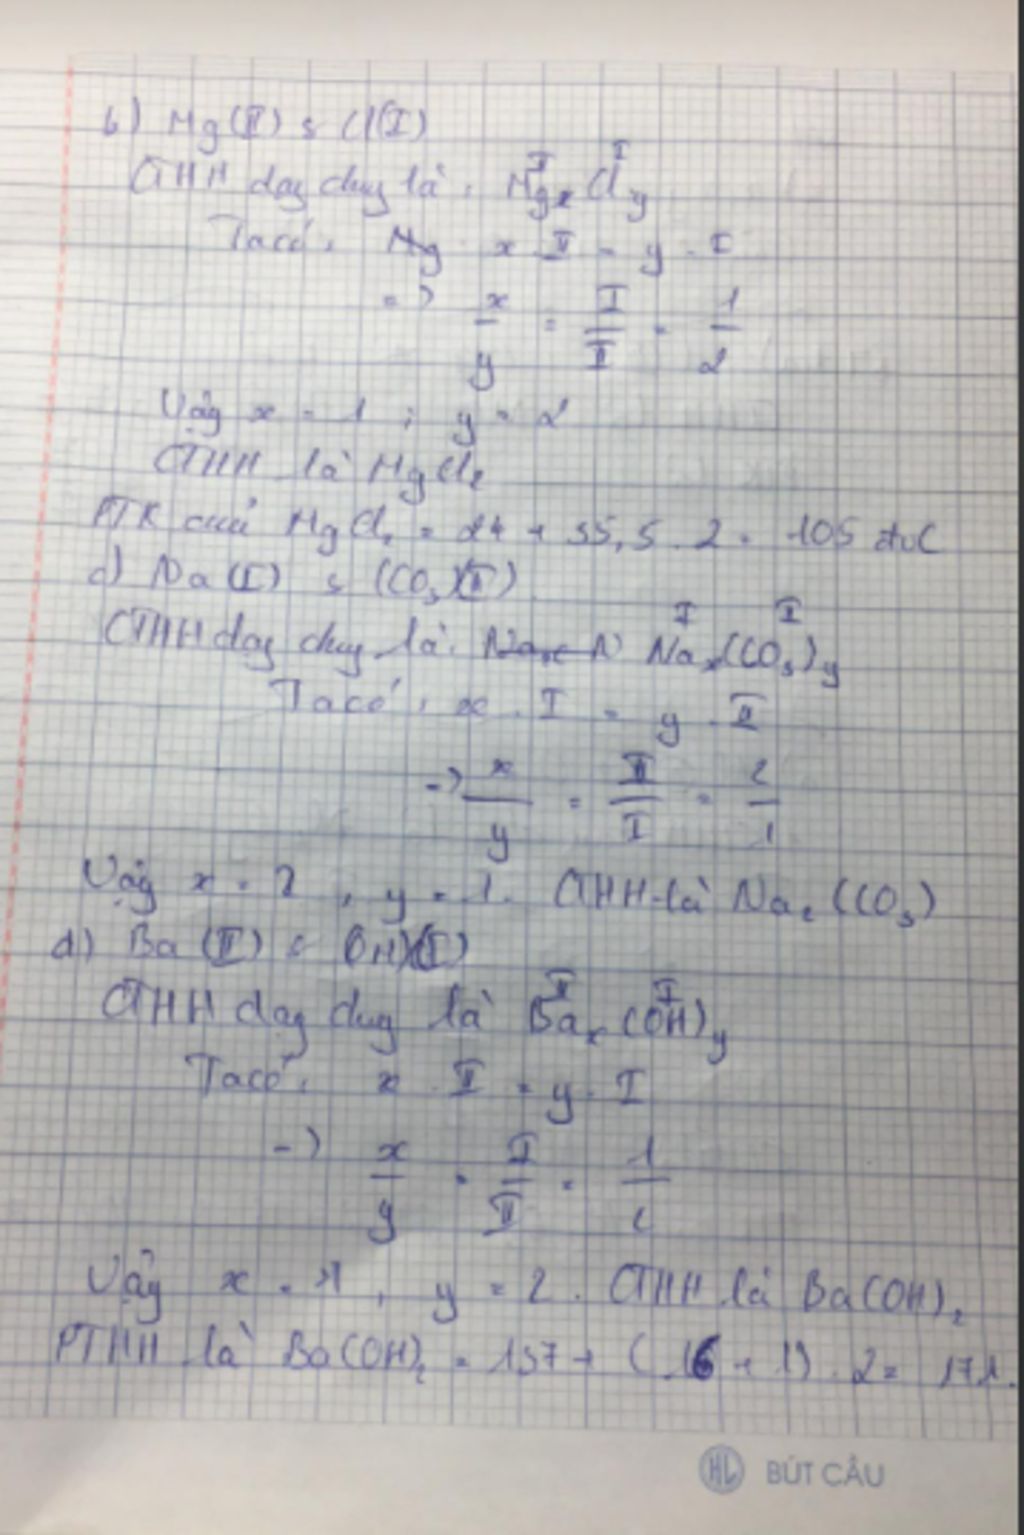 b) Mg(II) & Cl(I)
CTHH dạg chug là: Mg^II_x Cl^I_y
Ta có: Mg x . II = y . I
=> x/y = I/II = 1/2
Vậy x = 1 ; y = 2
CTHH là MgCl2
PTK của MgCl2 = 24 + 35,5 . 2 = 105 đvC
c) Na(I) & (CO3)(II)
CTHH dạg chug là: Nax N Na^I_x(CO3)^II_y
Ta có: x . I = y . II
-> x/y = II/I = 2/1
Vậy x = 2 , y = 1. CTHH là Na2(CO3)
d) Ba (II) & (OH)(I)
CTHH dạg chug là Ba^II_x (OH)^I_y
Ta có: x . II = y . I
-> x/y = I/II = 1/2
Vậy x = 1, y = 2. CTHH là Ba(OH)2
PTHH là Ba(OH)2 = 137 + (16 + 1) . 2 = 171.
HL BÚT CÂU